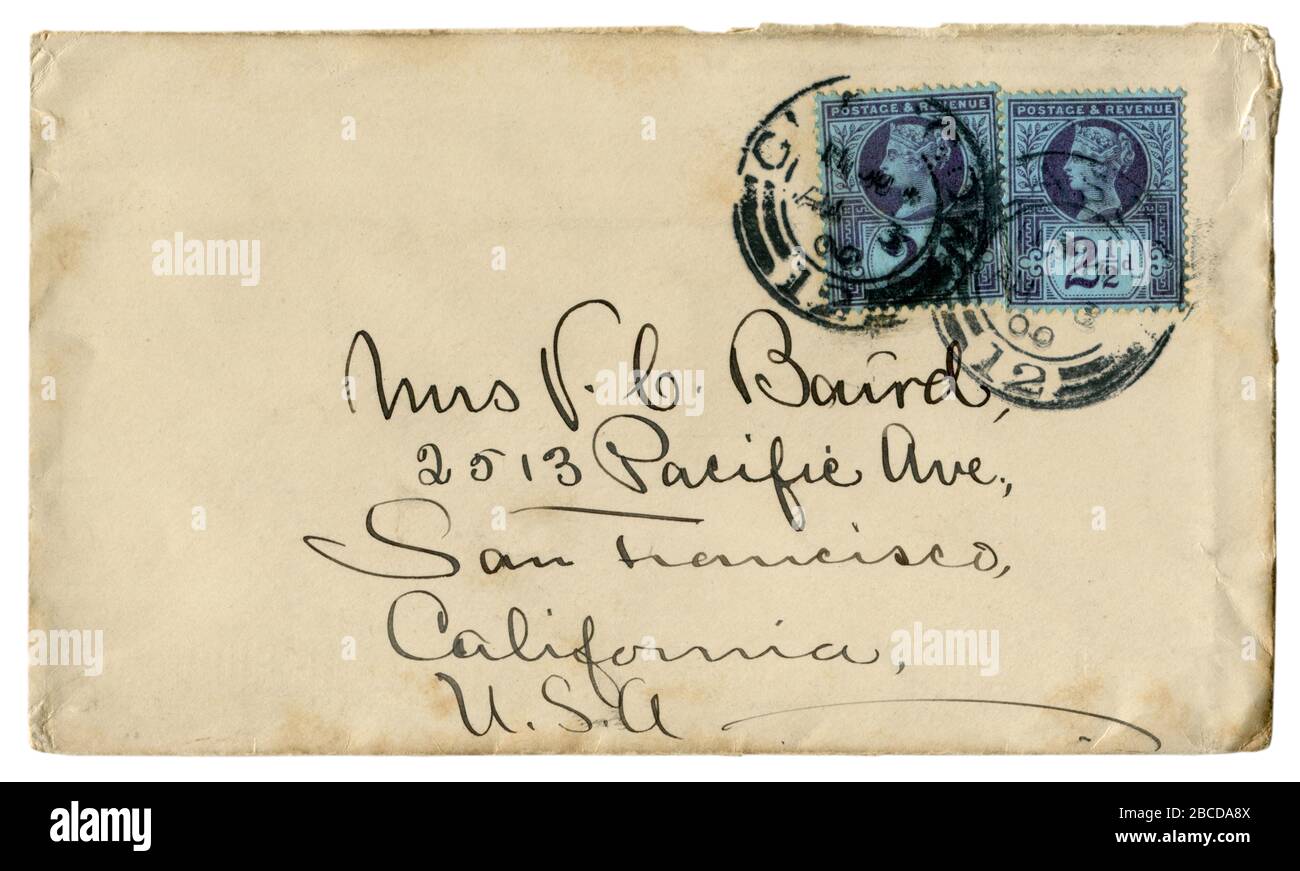 POSTAGE & REVENUE
POSTAGE & REVENUE
2½d
12
Mrs C. Baird,
2513 Pacific Ave.,
San Francisco,
California,
U.S.A
alamy
Image ID: 2BCDA8X
www.alamy.com